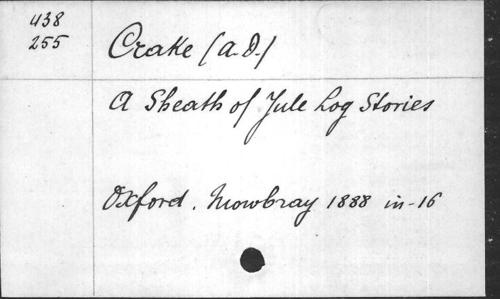 438
255
Crake (A.D.)
A Sheath of Yule Log Stories
Oxford. Mowbray 1888 in-16